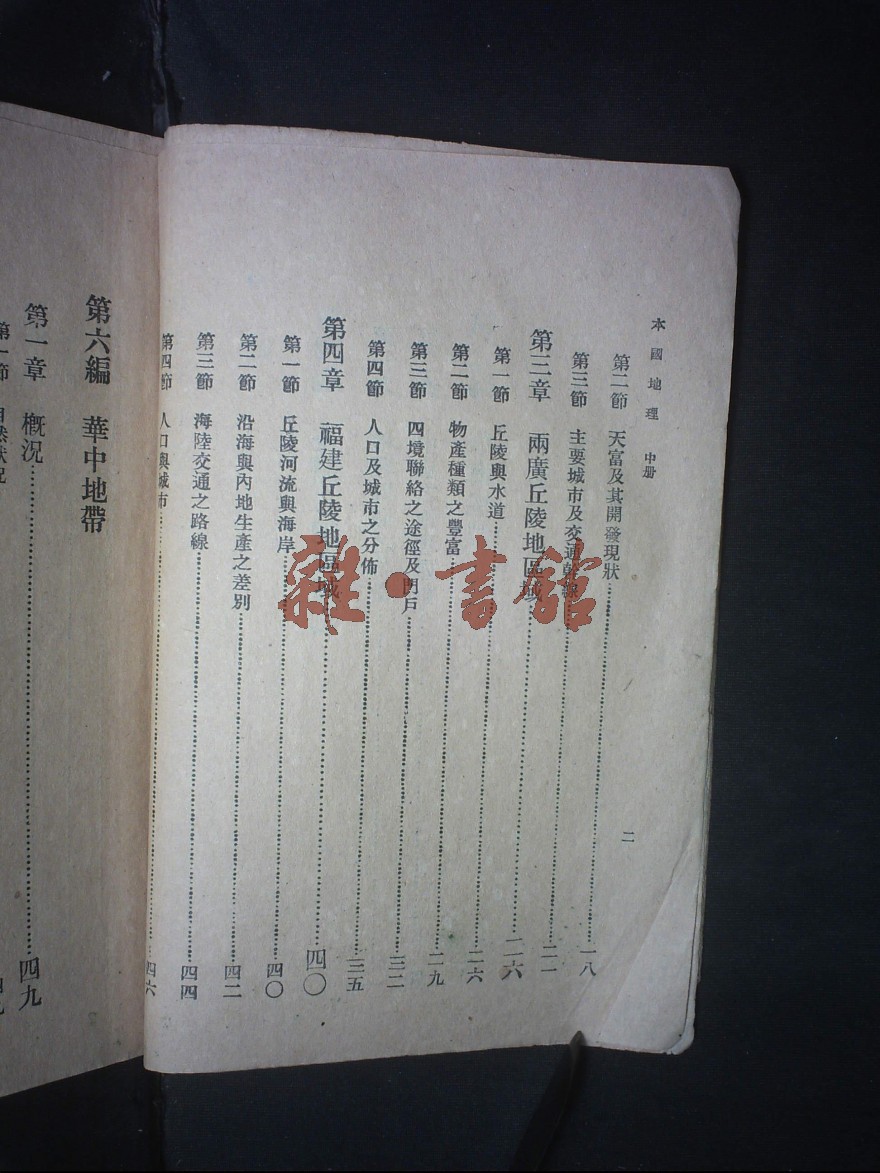 本國地理 中册
二
第二節 天富及其開發現狀……一八
第三節 主要城市及交通幹線……二一
第三章 兩廣丘陵地區域……二六
第一節 丘陵與水道……二六
第二節 物產種類之豐富……二九
第三節 四境聯絡之途徑及門戶……三二
第四節 人口及城市之分佈……三五
第四章 福建丘陵地區域……四〇
第一節 丘陵河流與海岸……四〇
第二節 沿海與內地生產之差別……四二
第三節 海陸交通之路線……四四
第四節 人口與城市……四六
第六編 華中地帶
第一章 概況……四九
第一節 自然狀況
雜·書舘